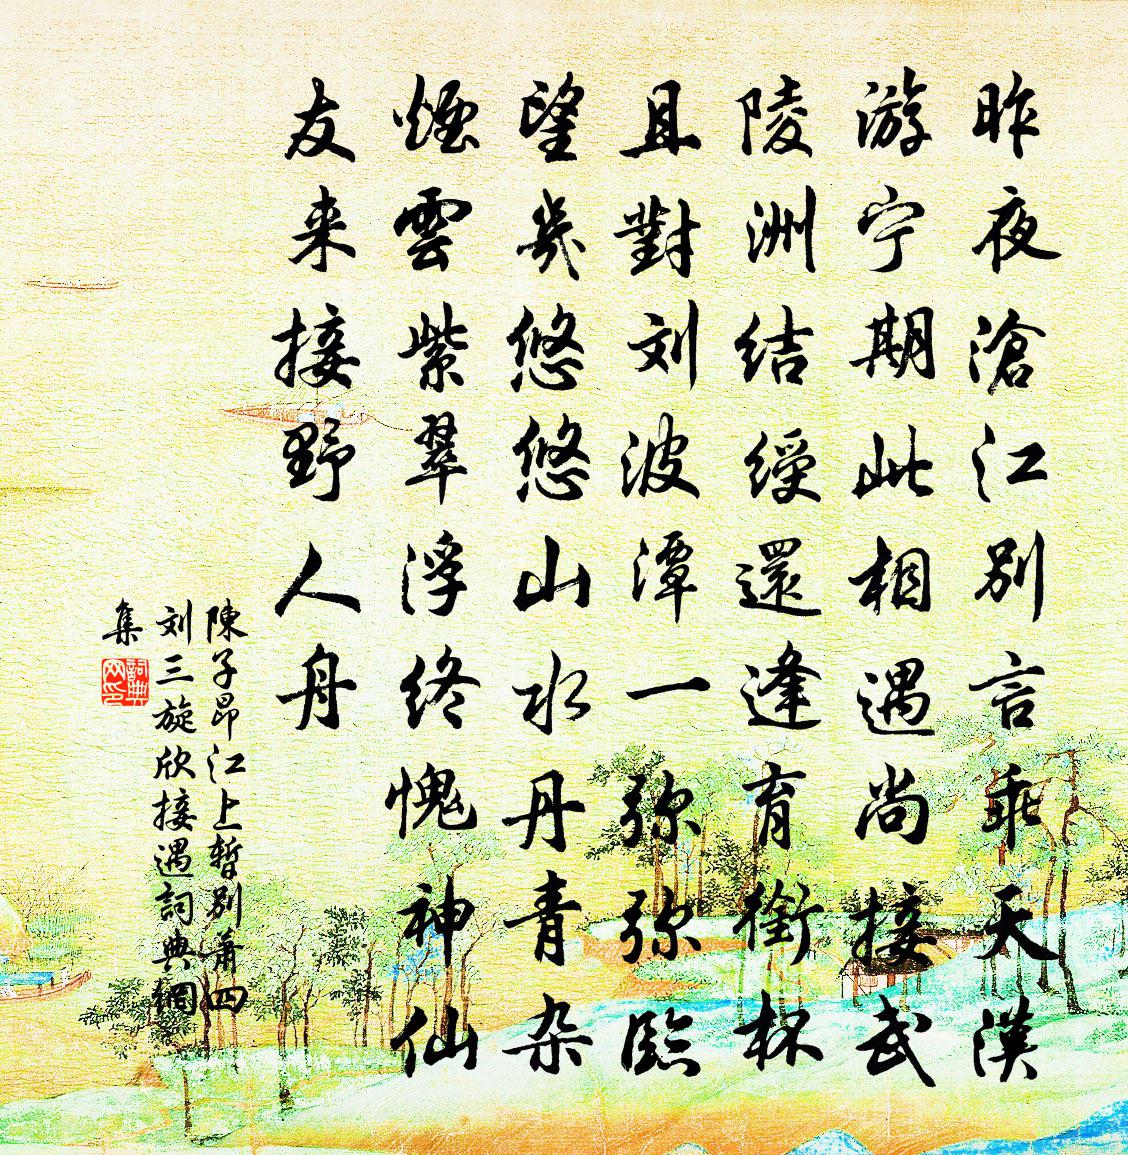 昨夜滄江別言乖天漢
游宁期此相遇尚接武
陵洲结綬還逢育銜杯
且對刘波潭一弥弥臨
望幾悠悠山水丹青杂
煙雲紫翠浮终愧神仙
友来接野人舟
陳子昂江上暫別萧四
刘三旋欣接遇詞典網
集
詞典
网印